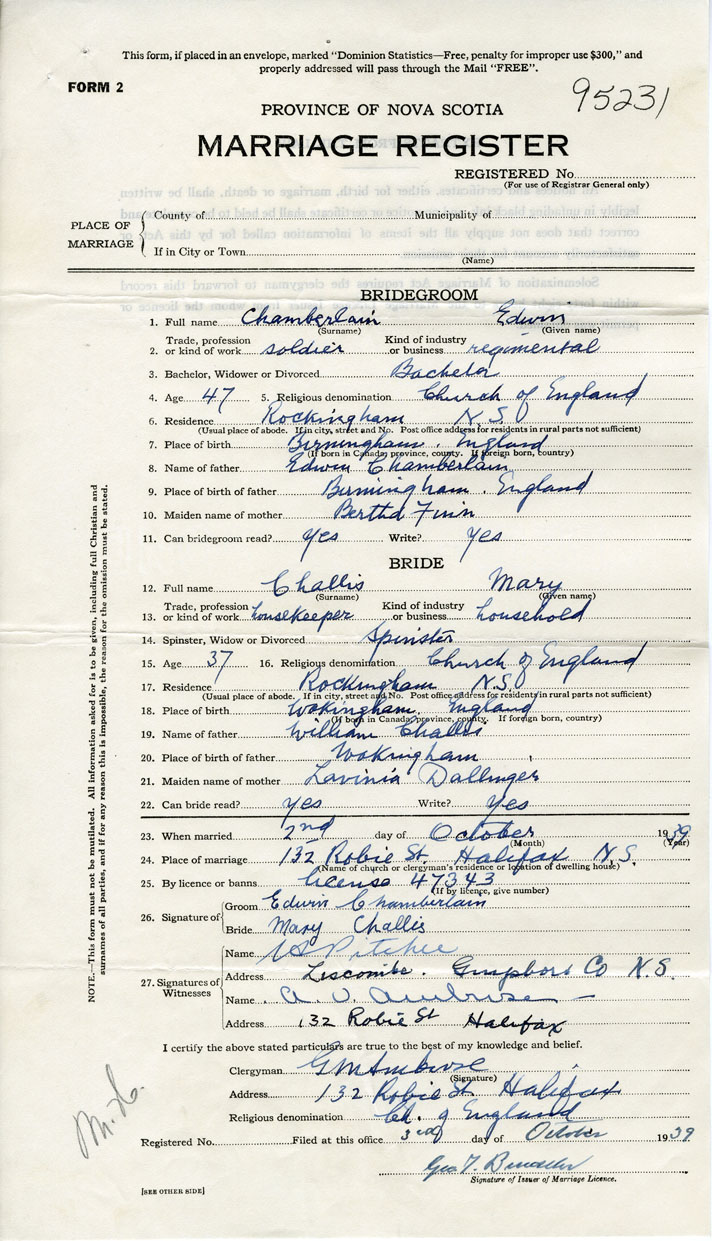 This form, if placed in an envelope, marked "Dominion Statistics—Free, penalty for improper use $300," and
properly addressed will pass through the Mail "FREE".
FORM 2
95231
PROVINCE OF NOVA SCOTIA
MARRIAGE REGISTER
REGISTERED No.
(For use of Registrar General only)
PLACE OF MARRIAGE
County of Municipality of
If in City or Town
(Name)
BRIDEGROOM
1. Full name Chamberlain Edwin
(Surname) (Given name)
2. Trade, profession or kind of work soldier Kind of industry or business regimental
3. Bachelor, Widower or Divorced Bachelor
4. Age 47 5. Religious denomination Church of England
6. Residence Rockingham N.S.
(Usual place of abode. If in city, street and No. Post office address for residents in rural parts not sufficient)
7. Place of birth Birmingham. England
(If born in Canada, province, county. If foreign born, country)
8. Name of father Edwin Chamberlain
9. Place of birth of father Birmingham. England
10. Maiden name of mother Bertha Finn
11. Can bridegroom read? Yes Write? Yes
BRIDE
12. Full name Challis Mary
(Surname) (Given name)
13. Trade, profession or kind of work housekeeper Kind of industry or business household
14. Spinster, Widow or Divorced Spinster
15. Age 37 16. Religious denomination Church of England
17. Residence Rockingham N.S.
(Usual place of abode. If in city, street and No. Post office address for residents in rural parts not sufficient)
18. Place of birth Wokingham. England
(If born in Canada, province, county. If foreign born, country)
19. Name of father William Challis
20. Place of birth of father Wokingham
21. Maiden name of mother Lavinia Dallinger
22. Can bride read? Yes Write? Yes
23. When married 2nd day of October 1939
(Month) (Year)
24. Place of marriage 132 Robie St. Halifax N.S.
(Name of church or clergyman's residence or location of dwelling house)
25. By licence or banns license 47343
(If by licence, give number)
26. Signature of
Groom Edwin Chamberlain
Bride Mary Challis
27. Signatures of Witnesses
Name Pitcher
Address Liscombe. Guysboro Co N.S.
Name A. V. Ambrose
Address 132 Robie St Halifax
I certify the above stated particulars are true to the best of my knowledge and belief.
Clergyman G M Ambrose
(Signature)
Address 132 Robie St. Halifax
Religious denomination Ch. of England
Registered No. Filed at this office 3rd day of October 1939
Geo. T.
Signature of Issuer of Marriage Licence.
[SEE OTHER SIDE]
NOTE.—This form must not be mutilated. All information asked for is to be given, including full Christian and
surnames of all parties, and if for any reason this is impossible, the reason for the omission must be stated.